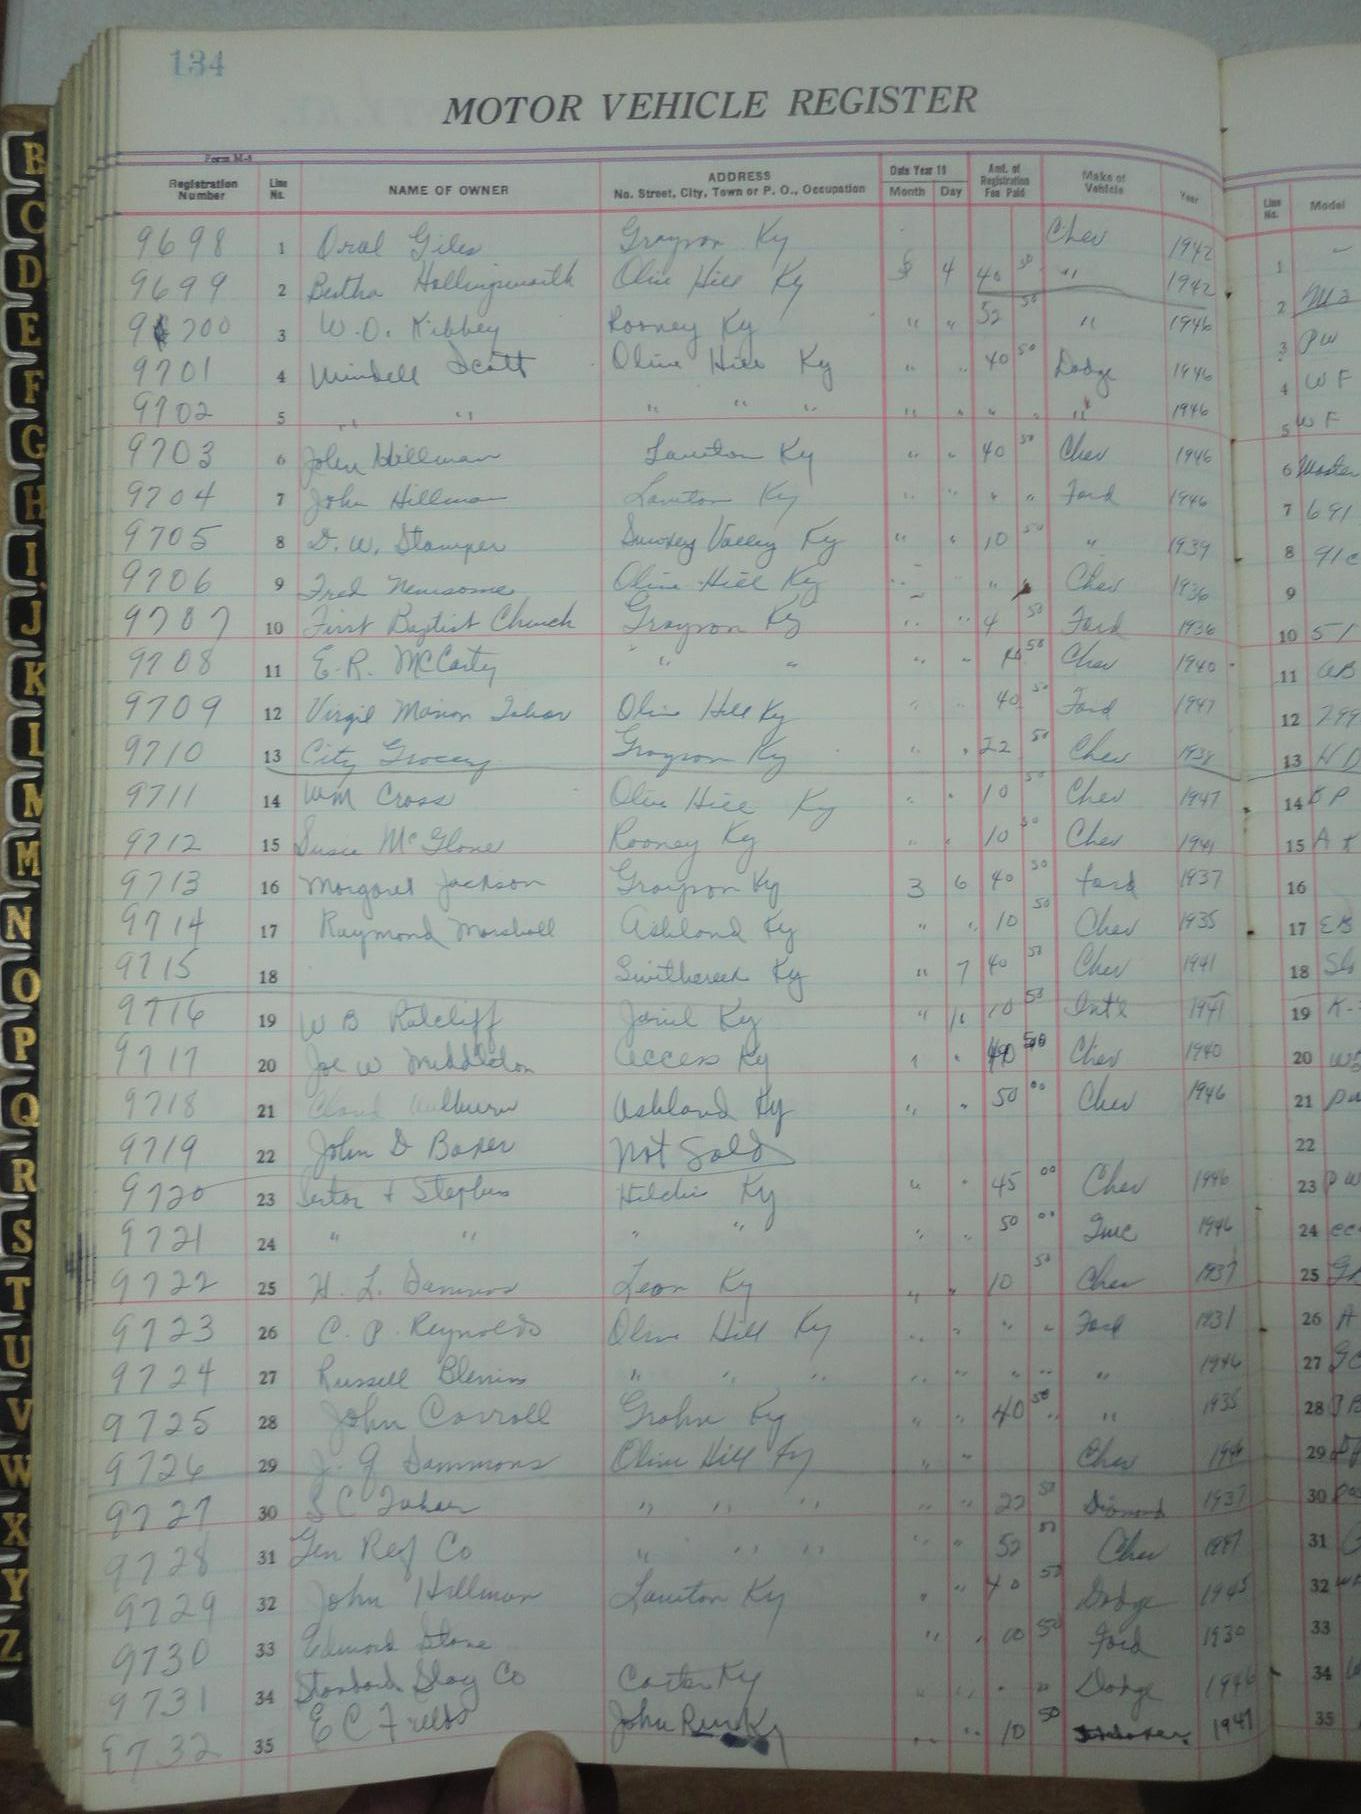 134
MOTOR VEHICLE REGISTER
Form M-8
Registration Number Line No. NAME OF OWNER ADDRESS No. Street, City, Town or P. O., Occupation Date Year 19 Month Day Amt. of Registration Fee Paid Make of Vehicle Year Line No. Model
9698 1 Oral Giles Grayson Ky Chev 1942 1 -
9699 2 Bertha Hollingsworth Olive Hill Ky 4 40 50 " 1942 2
9700 3 W. O. Kibbey Rooney Ky " " 52 50 " 1946 3 PW
9701 4 Windell Scott Olive Hill Ky " " 40 50 Dodge 1946 4 WF
9702 5 " " " " " " " " " " 1946 5 WF
9703 6 John Hillman Lawton Ky " " 40 50 Chev 1946 6 Master
9704 7 John Hillman Lawton Ky " " " " Ford 1946 7 691
9705 8 D. W. Stamper Smokey Valley Ky " " 10 50 " 1939 8 91c
9706 9 Fred Newsome Olive Hill Ky " " Chev 1936 9
9707 10 First Baptist Church Grayson Ky " " 4 50 Ford 1936 10 51
9708 11 E. R. McCarty " " " " 50 Chev 1940 11
9709 12 Virgil Marion Olive Hill Ky " " 40 50 Ford 1947 12 799
9710 13 City Grocery Grayson Ky " " 22 50 Chev 1938 13
9711 14 Wm Cross Olive Hill Ky " " 10 50 Chev 1947 14
9712 15 Susie McGlone Rooney Ky " " 10 50 Chev 1941 15 A
9713 16 Margaret Jackson Grayson Ky 3 6 40 50 Ford 1937 16
9714 17 Raymond Marshall Ashland Ky " " 10 50 Chev 1935 17 EB
9715 18 Ky " 7 40 50 Chev 1941 18
9716 19 W B Ratcliff Ky " 10 50 Int'l 1941 19 K-
9717 20 Joe W Middleton Access Ky " " Chev 1940 20
9718 21 Ashland Ky " " 50 00 Chev 1946 21
9719 22 John D Baker Not Sold 22
9720 23 & Stephens Ky " " 45 00 Chev 1946 23
9721 24 " " " " " " 50 00 Gmc 1946 24
9722 25 H. L. Sammons Leon Ky " " 10 50 Chev 1937 25
9723 26 C. P. Reynolds Olive Hill Ky " " " " Ford 1931 26 A
9724 27 Russell Blevins " " " " " " " " 1946 27
9725 28 John Carroll Grahn Ky " " 40 50 " 1935 28
9726 29 J. G Sammons Olive Hill Ky " " Chev 29
9727 30 S C " " " " " 22 50 Diamond 1937 30
9728 31 Gen Ref Co " " " " " " 52 50 Chev 1947 31
9729 32 John Hillman Lawton Ky " " 40 50 Dodge 1945 32
9730 33 Edward Stone " " 10 50 Ford 1930 33
9731 34 Standard Slag Co Carter Ky " " Dodge 1946 34
9732 35 E C Fields John Run Ky " " 10 50 1947 35
B
C
D
E
F
G
H
I
J
K
L
M
M
N
O
P
Q
R
S
T
U
V
W
X
Y
Z